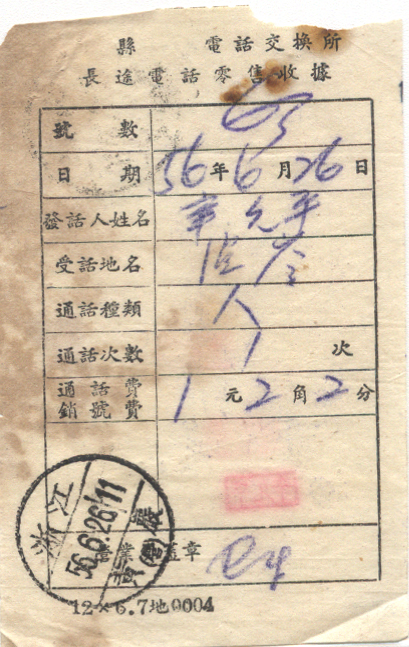 縣 電話交換所
長途電話零售收據
號數 63
日期 56年6月26日
發話人姓名
受話地名
通話種類 人
通話次數 1次
通話費
銷號費 1元2角2分
業 蓋章
浙江
56.6.26.11
黃巖
12×6.7地0004